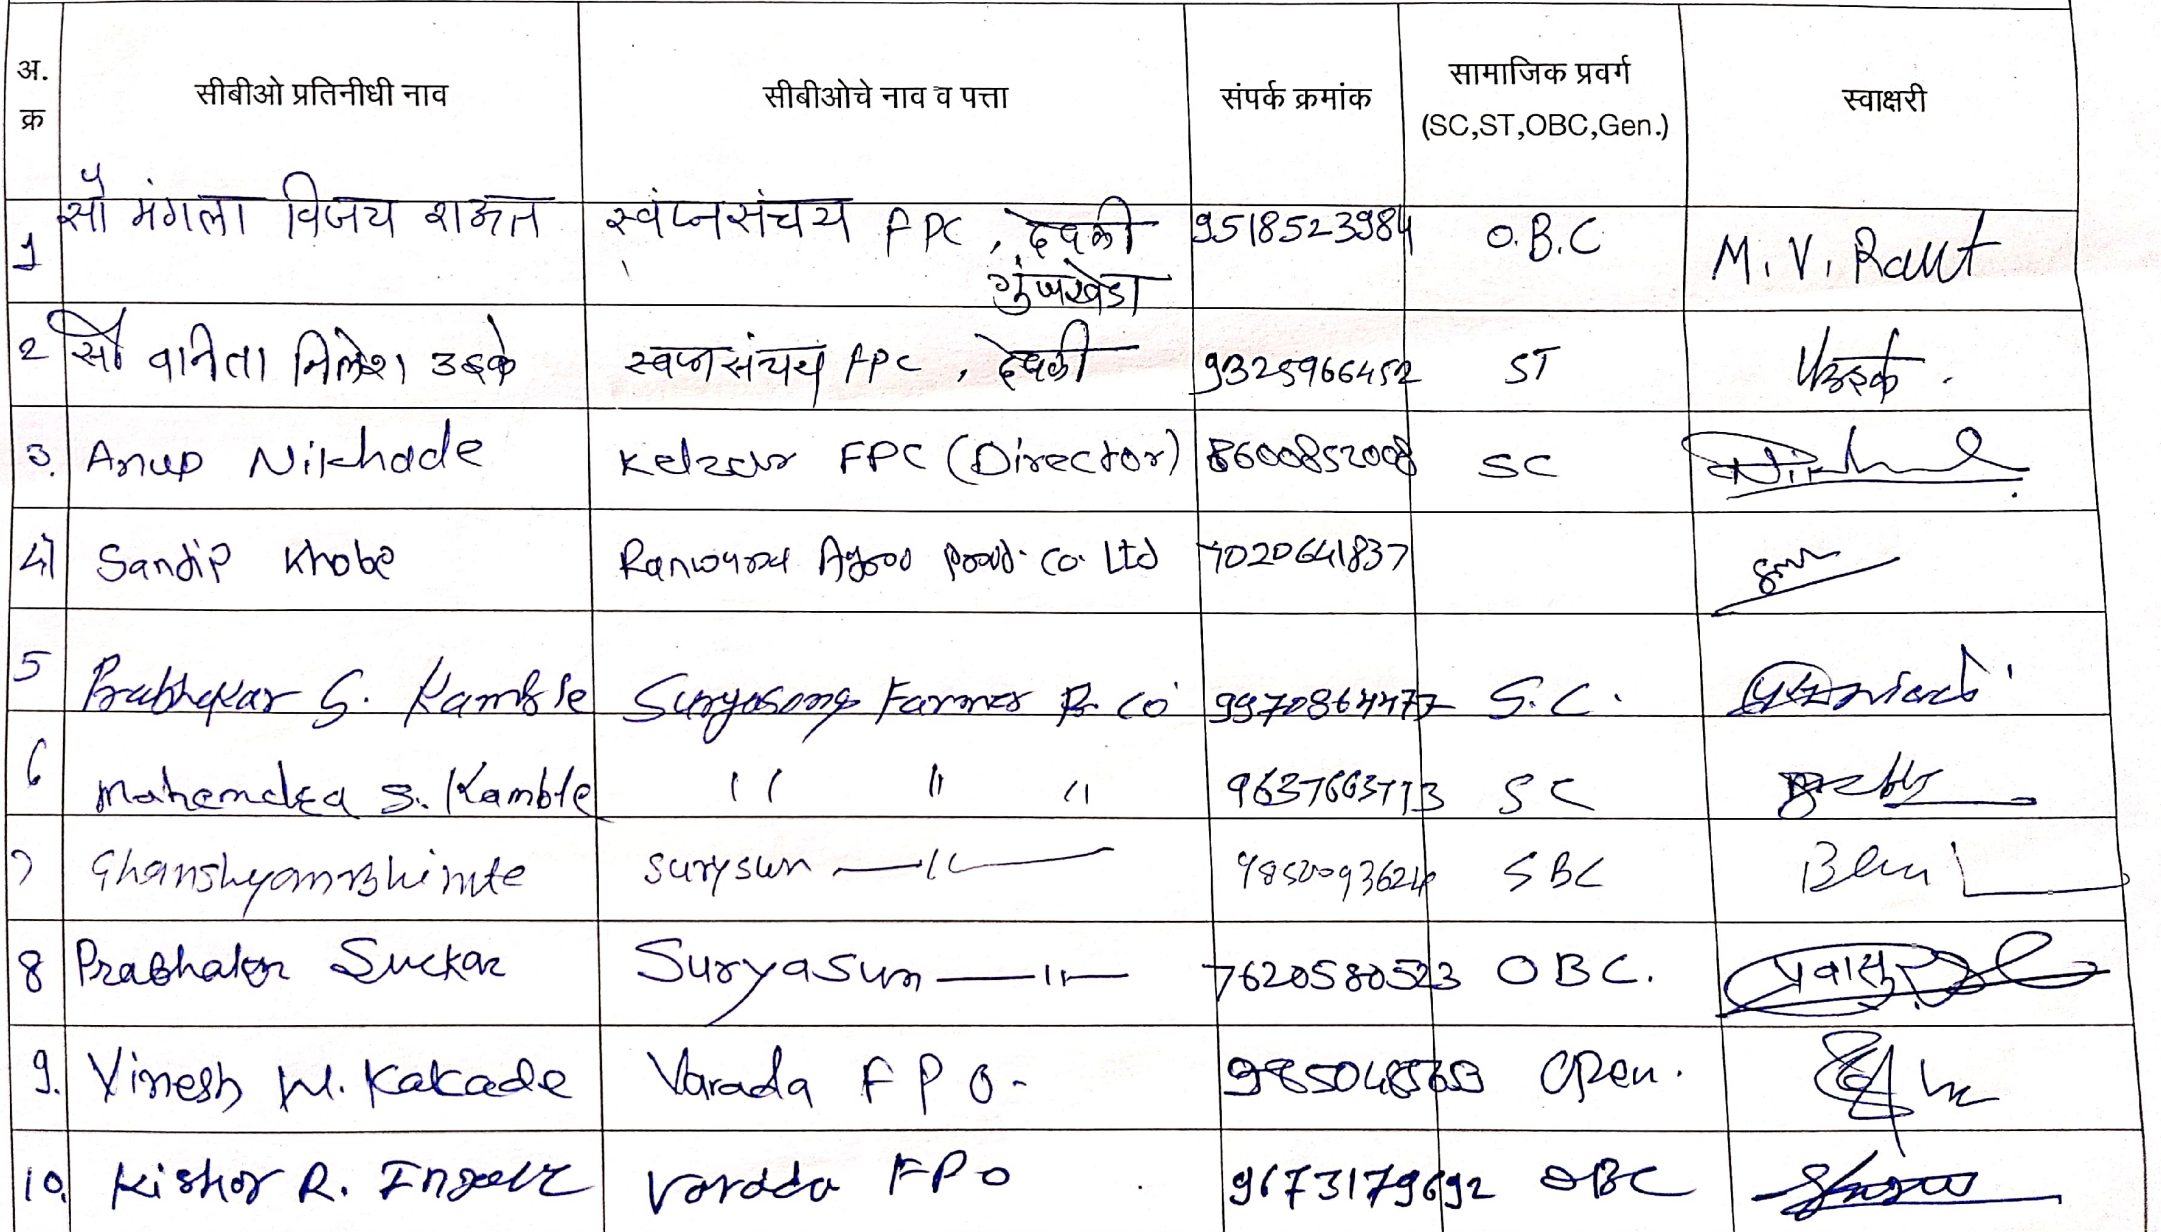 अ. क्र सीबीओ प्रतिनीधी नाव सीबीओचे नाव व पत्ता संपर्क क्रमांक सामाजिक प्रवर्ग (SC,ST,OBC,Gen.) स्वाक्षरी
1 सौ मंगला विजय राऊत स्वप्नसंचय FPC, देवळी 9518523984 O.B.C M.V. Raut
गुंजखेडा
2 सौ वनिता निलेश उइके स्वप्नसंचय FPC, देवळी 9325966452 ST
3. Anup Nikhade Kelzar FPC (Director) 8600852008 SC
4) Sandip Khobe Agroo Prod. Co. Ltd 7020641837
5 Prabhakar S. Kamble Farmer P. Co 9970864477 S.C.
6 Mahendra S. Kamble " " " SC
7 Ghanshyam Bhimte surysun —"— SBC
8 Prabhakar Suckar Suryasun —"— 7620580523 OBC.
9. Vinesh W. Kakade Varada F P O. Open.
10. Kishor R. Varada FPO 9673179692 OBC